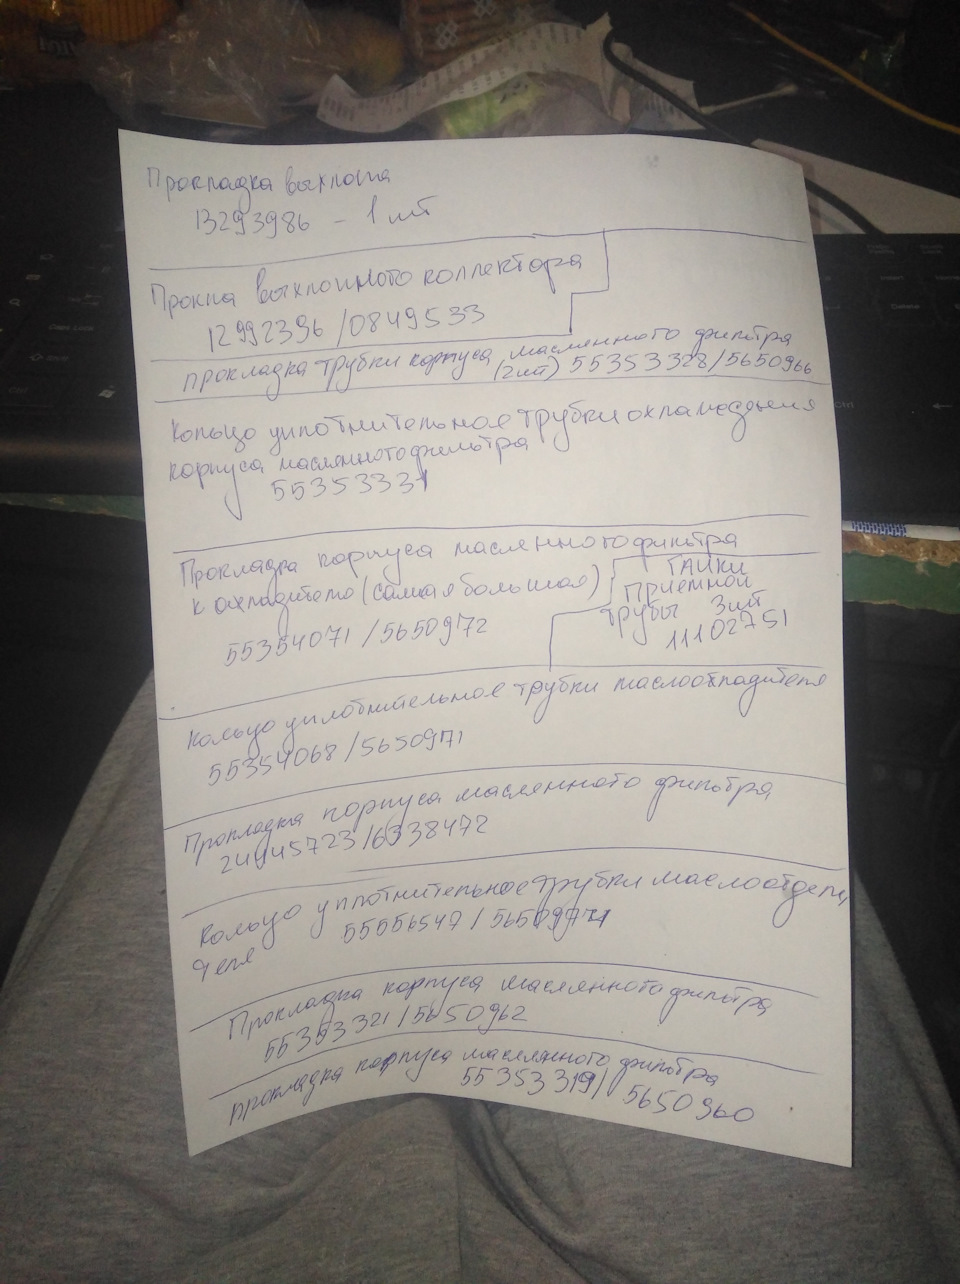 Прокладка выхлопа
13293986 - 1 шт
Прокла выхлопного коллектора
12992396 / 0849533
прокладка трубки корпуса маслянного фильтра
(2шт) 55353328/5650966
Кольцо уплотнительное трубки охлаждения
корпуса маслянного фильтра
55353331
Прокладка корпуса маслянного фильтра
к охладителю (самая большая)
55354071 / 5650972
ГАЙКИ
Приемной
трубы 3шт
11102751
Кольцо уплотнительное трубки маслоохладителя
55354068 / 5650971
Прокладка корпуса маслянного фильтра
24445723 / 6338472
Кольцо уплотнительное трубки маслоотдели
теля
55556547 / 5650974
Прокладка корпуса маслянного фильтра
55353321 / 5650962
прокладка корпуса маслянного фильтра
55353319 / 5650960